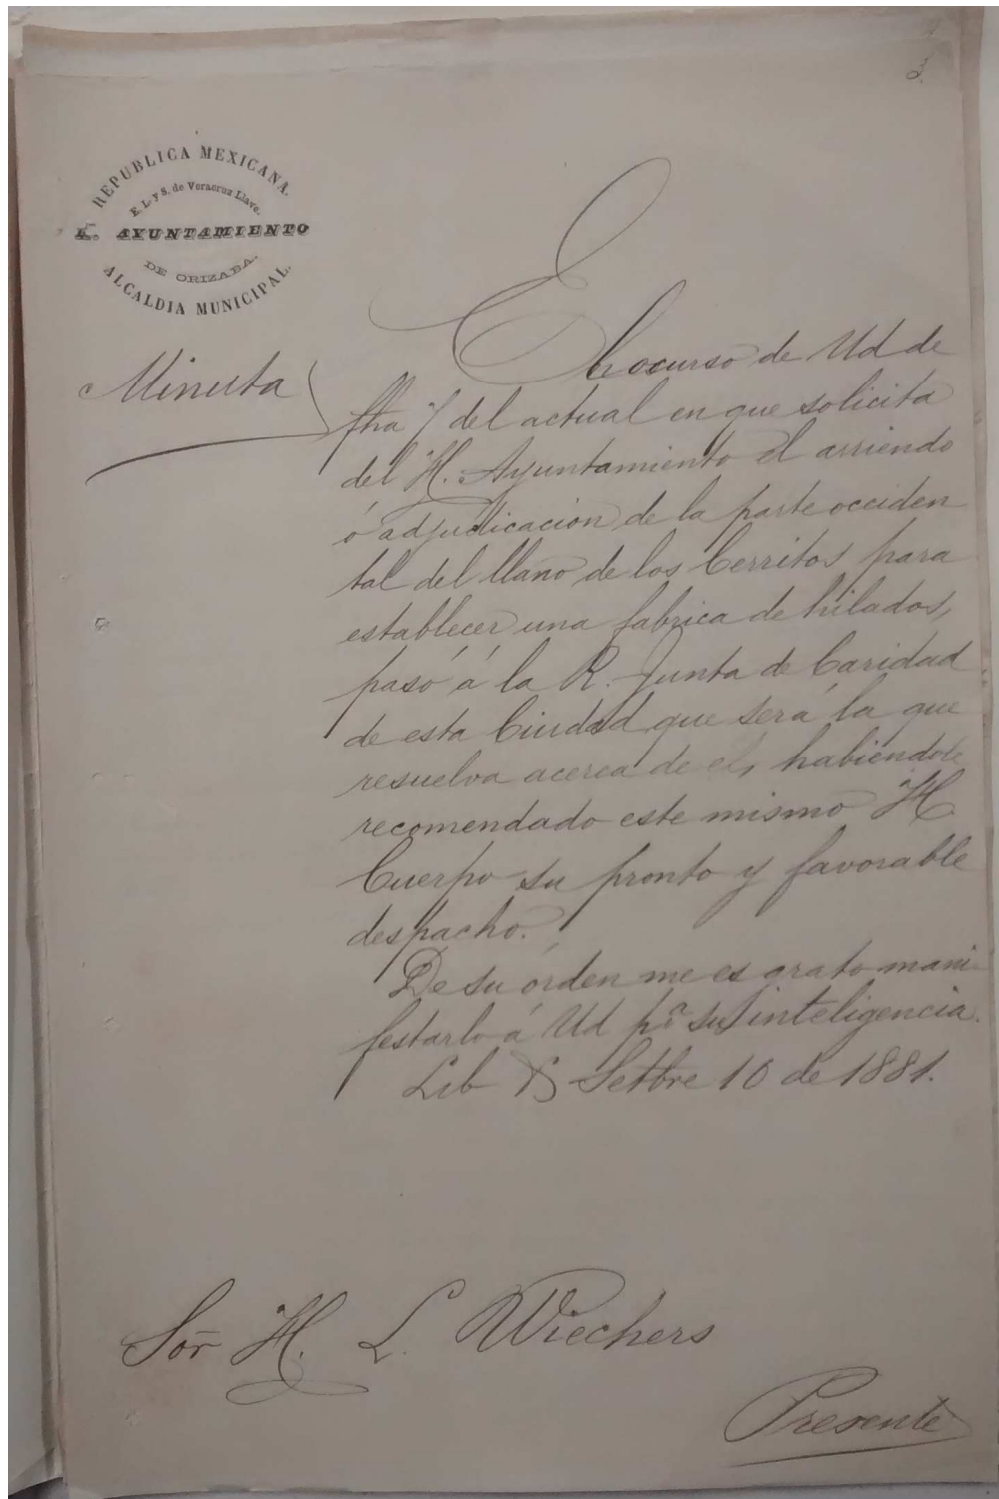 3.
REPUBLICA MEXICANA.
E. L. y S. de Veracruz Llave.
AYUNTAMIENTO
DE ORIZABA.
ALCALDIA MUNICIPAL.
Minuta
El ocurso de Ud de
fha 7 del actual en que solicita
del H. Ayuntamiento el arriendo
ó adjudicacion de la parte occiden
tal del llano de los Cerritos para
establecer una fabrica de hilados,
pasó á la R. Junta de Caridad
de esta Ciudad que será la que
resuelva acerca de el, habiendole
recomendado este mismo H
Cuerpo su pronto y favorable
despacho.
De su órden me es grato mani-
festarlo á Ud pª su inteligencia.
Lib Setbre 10 de 1881.
Sor H. L. Wiechers
Presente